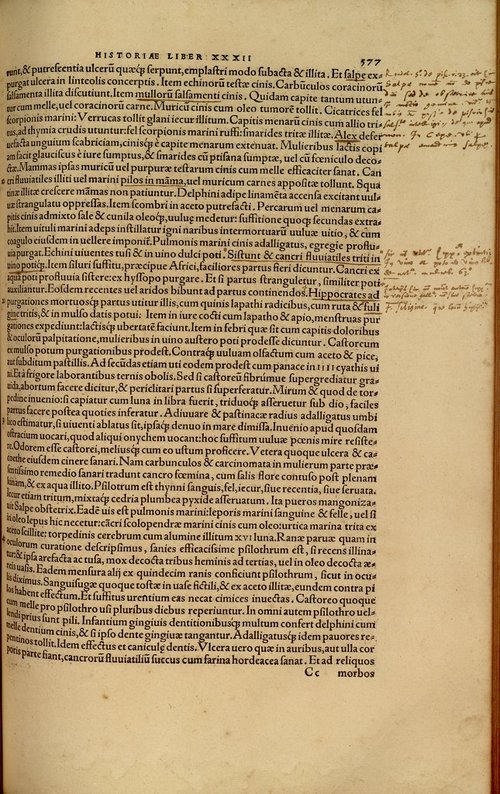 HISTORIAE LIBER XXXII 577
runt, & putrescentia ulcerũ quæcꝗ serpunt, emplastri modo subacta & illita. Et salpe ex-
purgat ulcera in linteolis concerptis. Item echinorũ testæ cinis. Carbũculos coracinorũ
salsamenta illita discutiunt. Item mullorũ salsamenti cinis. Quidam capite tantum utun-
tur cum melle, uel coracinorũ carne. Muricũ cinis cum oleo tumorẽ tollit. Cicatrices fel
scorpionis marini: Verrucas tollit glani iecur illitum. Capitis menarũ cinis cum allio tri-
tus, ad thymia crudis utuntur: fel scorpionis marini ruffi: smarides tritæ illitæ. Alex defer
uefacta unguium scabriciam, cinisꝗ è capite menarum extenuat. Mulieribus lactis copi
am facit glauciscus è iure sumptus, & smarides cũ ptisana sumptæ, uel cũ fœniculo deco
ctæ. Mammas ipsas muricũ uel purpuræ testarum cinis cum melle efficaciter sanat. Can
cri fluuiatiles illiti uel marini pilos in mãma, uel muricum carnes appositæ tollunt. Squa
tinæ illitæ crescere mãmas non patiuntur. Delphini adipe linamẽta accensa excitant uul-
uæ strangulatu oppressas. Item scombri in aceto putrefacti. Percarum uel menarum ca-
pitis cinis admixto sale & cunila oleoꝗ, uuluę medetur: suffitione quoꝗ secundas extra-
hit. Item uituli marini adeps instillatur igni naribus intermortuarũ uuluæ uitio, & cum
coagulo eiusdem in uellere imponiẽ. Pulmonis marini cinis adalligatus, egregie profluu
uia purgat. Echini uiuentes tusi & in uino dulci poti. Sistunt & cancri fluuiatiles triti in
uino potiꝗ. Item siluri suffitu, præcipue Africi, faciliores partus fieri dicuntur. Cancri ex
aqua poti profluuia sistere: ex hyssopo purgare. Et si partus strangulетur, similiter poti
auxiliantur. Eosdem recentes uel aridos bibunt ad partus continendos. Hippocrates ad
purgationes mortuosꝗ partus utitur illis, cum quinis lapathi radicibus, cum ruta & fuli
gine tritis, & in mulso datis potui: Item in iure cocti cum lapatho & apio, menstruas pur
gationes expediunt: lactisꝗ ubertatẽ faciunt. Item in febri quæ sit cum capitis doloribus
& oculorũ palpitatione, mulieribus in uino austero poti prodesse dicuntur. Castoreum
ex mulso potum purgationibus prodest. Contraꝗ uuluam olfactum cum aceto & pice,
aut subditum pastillis. Ad secũdas etiam uti eodem prodest cum panace in IIII cyathis ui
ni. Et à frigore laborantibus ternis obolis. Sed si castoreũ fibrũue supergrediatur gra-
uida, abortum facere dicitur, & periclitari partus si superferatur. Mirum & quod de tor-
pedine inuenio: si capiatur cum luna in libra fuerit, triduoꝗ asseruetur sub dio, faciles
partus facere postea quoties inferatur. Adiuuare & pastinacæ radius adalligatus umbi
lico estimatur, si uiuenti ablatus sit, ipsaꝗ denuo in mare dimissa. Inuenio apud quosdam
ostracium uocari, quod aliqui onychem uocant: hoc suffitum uuluæ pœnis mire resiste-
re. Odorem esse castorei, meliusꝗ cum eo ustum proficere. Vetera quoque ulcera & ca-
coethe eiusdem cinere sanari. Nam carbunculos & carcinomata in mulierum parte præ-
sentissimo remedio sanari tradunt cancro fœmina, cum salis flore contuso post plenam
lunam, & ex aqua illito. Psilothrum est thynni sanguis, fel, iecur, siue recentia, siue seruata.
Iecur etiam tritum, mixtaꝗ cedria plumbea pyxide asseruatum. Ita pueros mangoniza-
uit Salpe obstetrix. Eadẽ uis est pulmonis marini: leporis marini sanguine & felle, uel si
in oleo lepus hic necetur: cãcri scolopendræ marini cinis cum oleo: urtica marina trita ex
aceto scillite: torpedinis cerebrum cum alumine illitum XVI luna. Ranæ paruæ quam in
oculorum curatione descripsimus, sanies efficacissime psilothrum est, si recens illina-
tur: & ipsa arefacta ac tusa, mox decocta tribus heminis ad tertias, uel in oleo decocta æ-
reis uasis. Eadem mensura alij ex quindecim ranis conficiunt psilothrum, sicut in ocu-
lis diximus. Sanguisugæ quoque tostæ in uase fictili, & ex aceto illitæ, eundem contra pi
los habent effectum. Et suffitus urentium eas necat cimices inuectas. Castoreo quoque
cum melle pro psilothro usi pluribus diebus reperiuntur. In omni autem psilothro uel-
lendi prius sunt pili. Infantium gingiuis dentitionibusꝗ multum confert delphini cum
melle dentium cinis, & si ipso dente gingiuæ tangantur. Adalligatusꝗ idem pauores re-
pentinos tollit. Idem effectus et caniculę dentis. Vlcera uero quæ in auribus, aut ulla cor
poris parte fiant, cancrorũ fluuiatiliũ succus cum farina hordeacea sanat. Et ad reliquos
Cc morbos